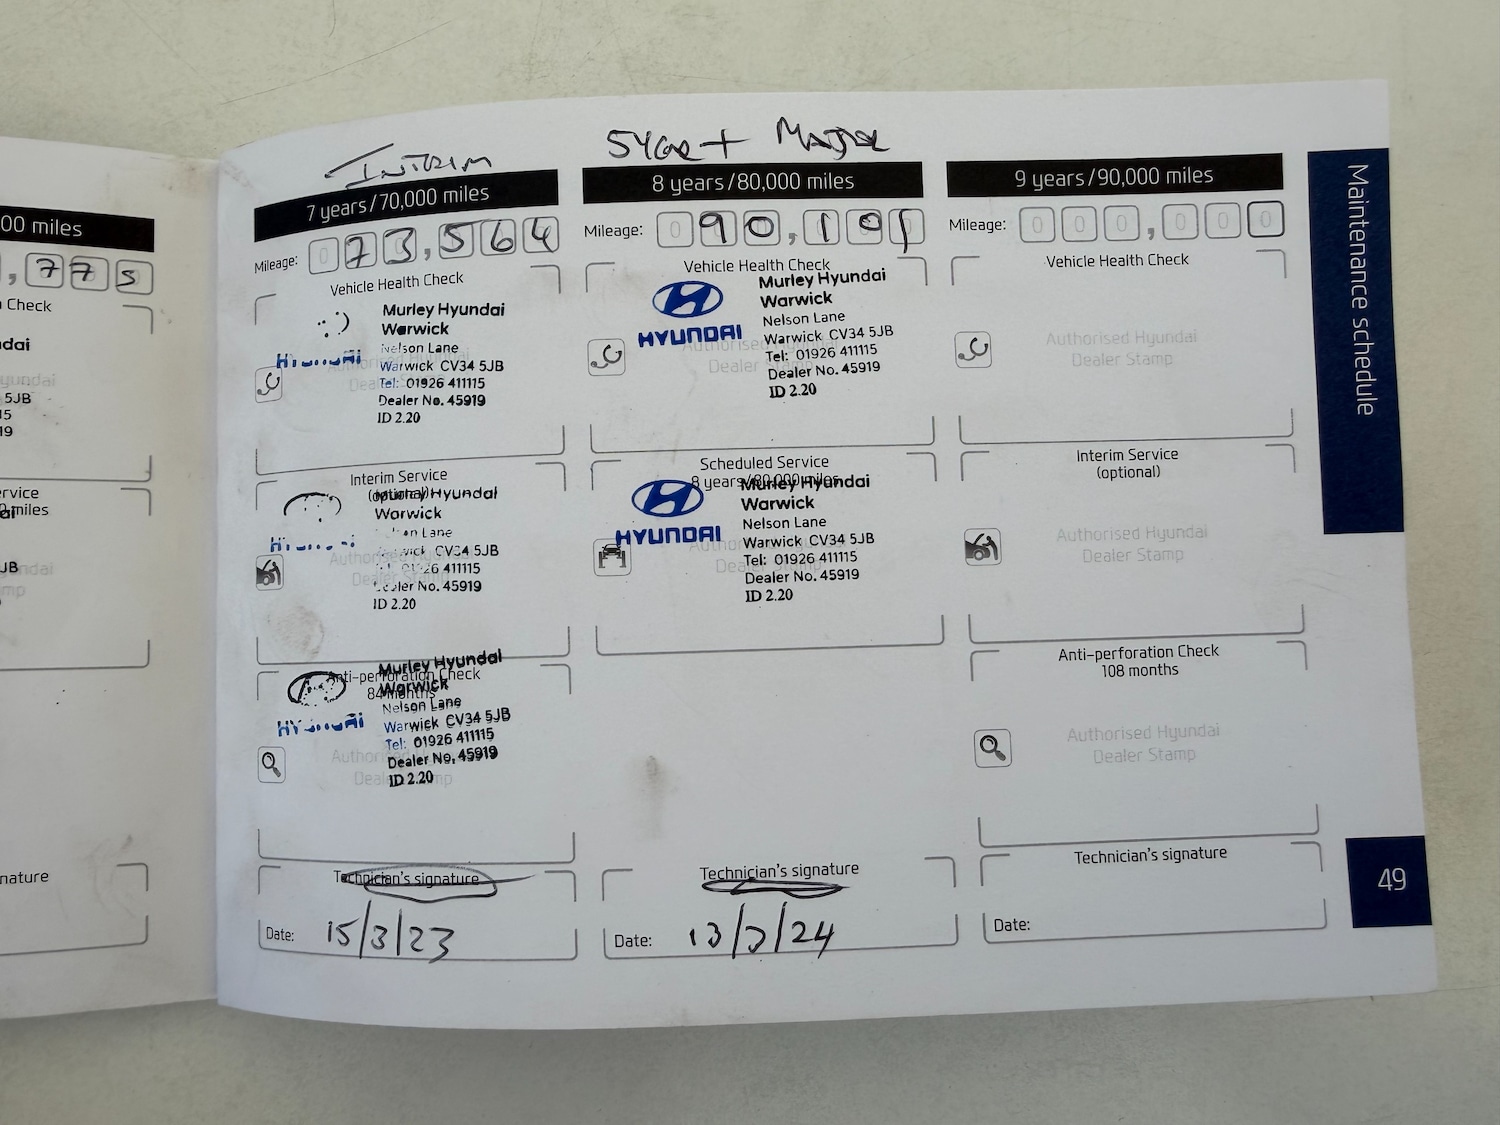 00 miles
,775
Check
dai
5JB
15
19
rvice
miles
JB
nature
Interim
7 years/70,000 miles
Mileage: 073,564
Vehicle Health Check
Murley Hyundai
Warwick
Nelson Lane
HYUNDAI
Authorised Hyundai
Dealer Stamp
Warwick CV34 5JB
Tel: 01926 411115
Dealer No. 45919
ID 2.20
Interim Service
(optional)
Murley Hyundai
Warwick
Nelson Lane
HYUNDAI
Warwick CV34 5JB
01926 411115
Dealer No. 45919
ID 2.20
Anti-perforation Check
84 months
Murley Hyundai
Warwick
Nelson Lane
HYUNDAI
Warwick CV34 5JB
Tel: 01926 411115
Dealer No. 45919
ID 2.20
Technician's signature
Date: 15/3/23
Major
8 years/80,000 miles
Mileage: 090,101
Vehicle Health Check
Murley Hyundai
Warwick
Nelson Lane
HYUNDAI
Authorised Hyundai
Dealer Stamp
Warwick CV34 5JB
Tel: 01926 411115
Dealer No. 45919
ID 2.20
Scheduled Service
8 years/80,000 miles
Murley Hyundai
Warwick
Nelson Lane
HYUNDAI
Warwick CV34 5JB
Tel: 01926 411115
Dealer No. 45919
ID 2.20
Technician's signature
Date: 13/3/24
9 years/90,000 miles
Mileage: 000,000
Vehicle Health Check
Authorised Hyundai
Dealer Stamp
Interim Service
(optional)
Authorised Hyundai
Dealer Stamp
Anti-perforation Check
108 months
Authorised Hyundai
Dealer Stamp
Technician's signature
Date:
Maintenance schedule
49